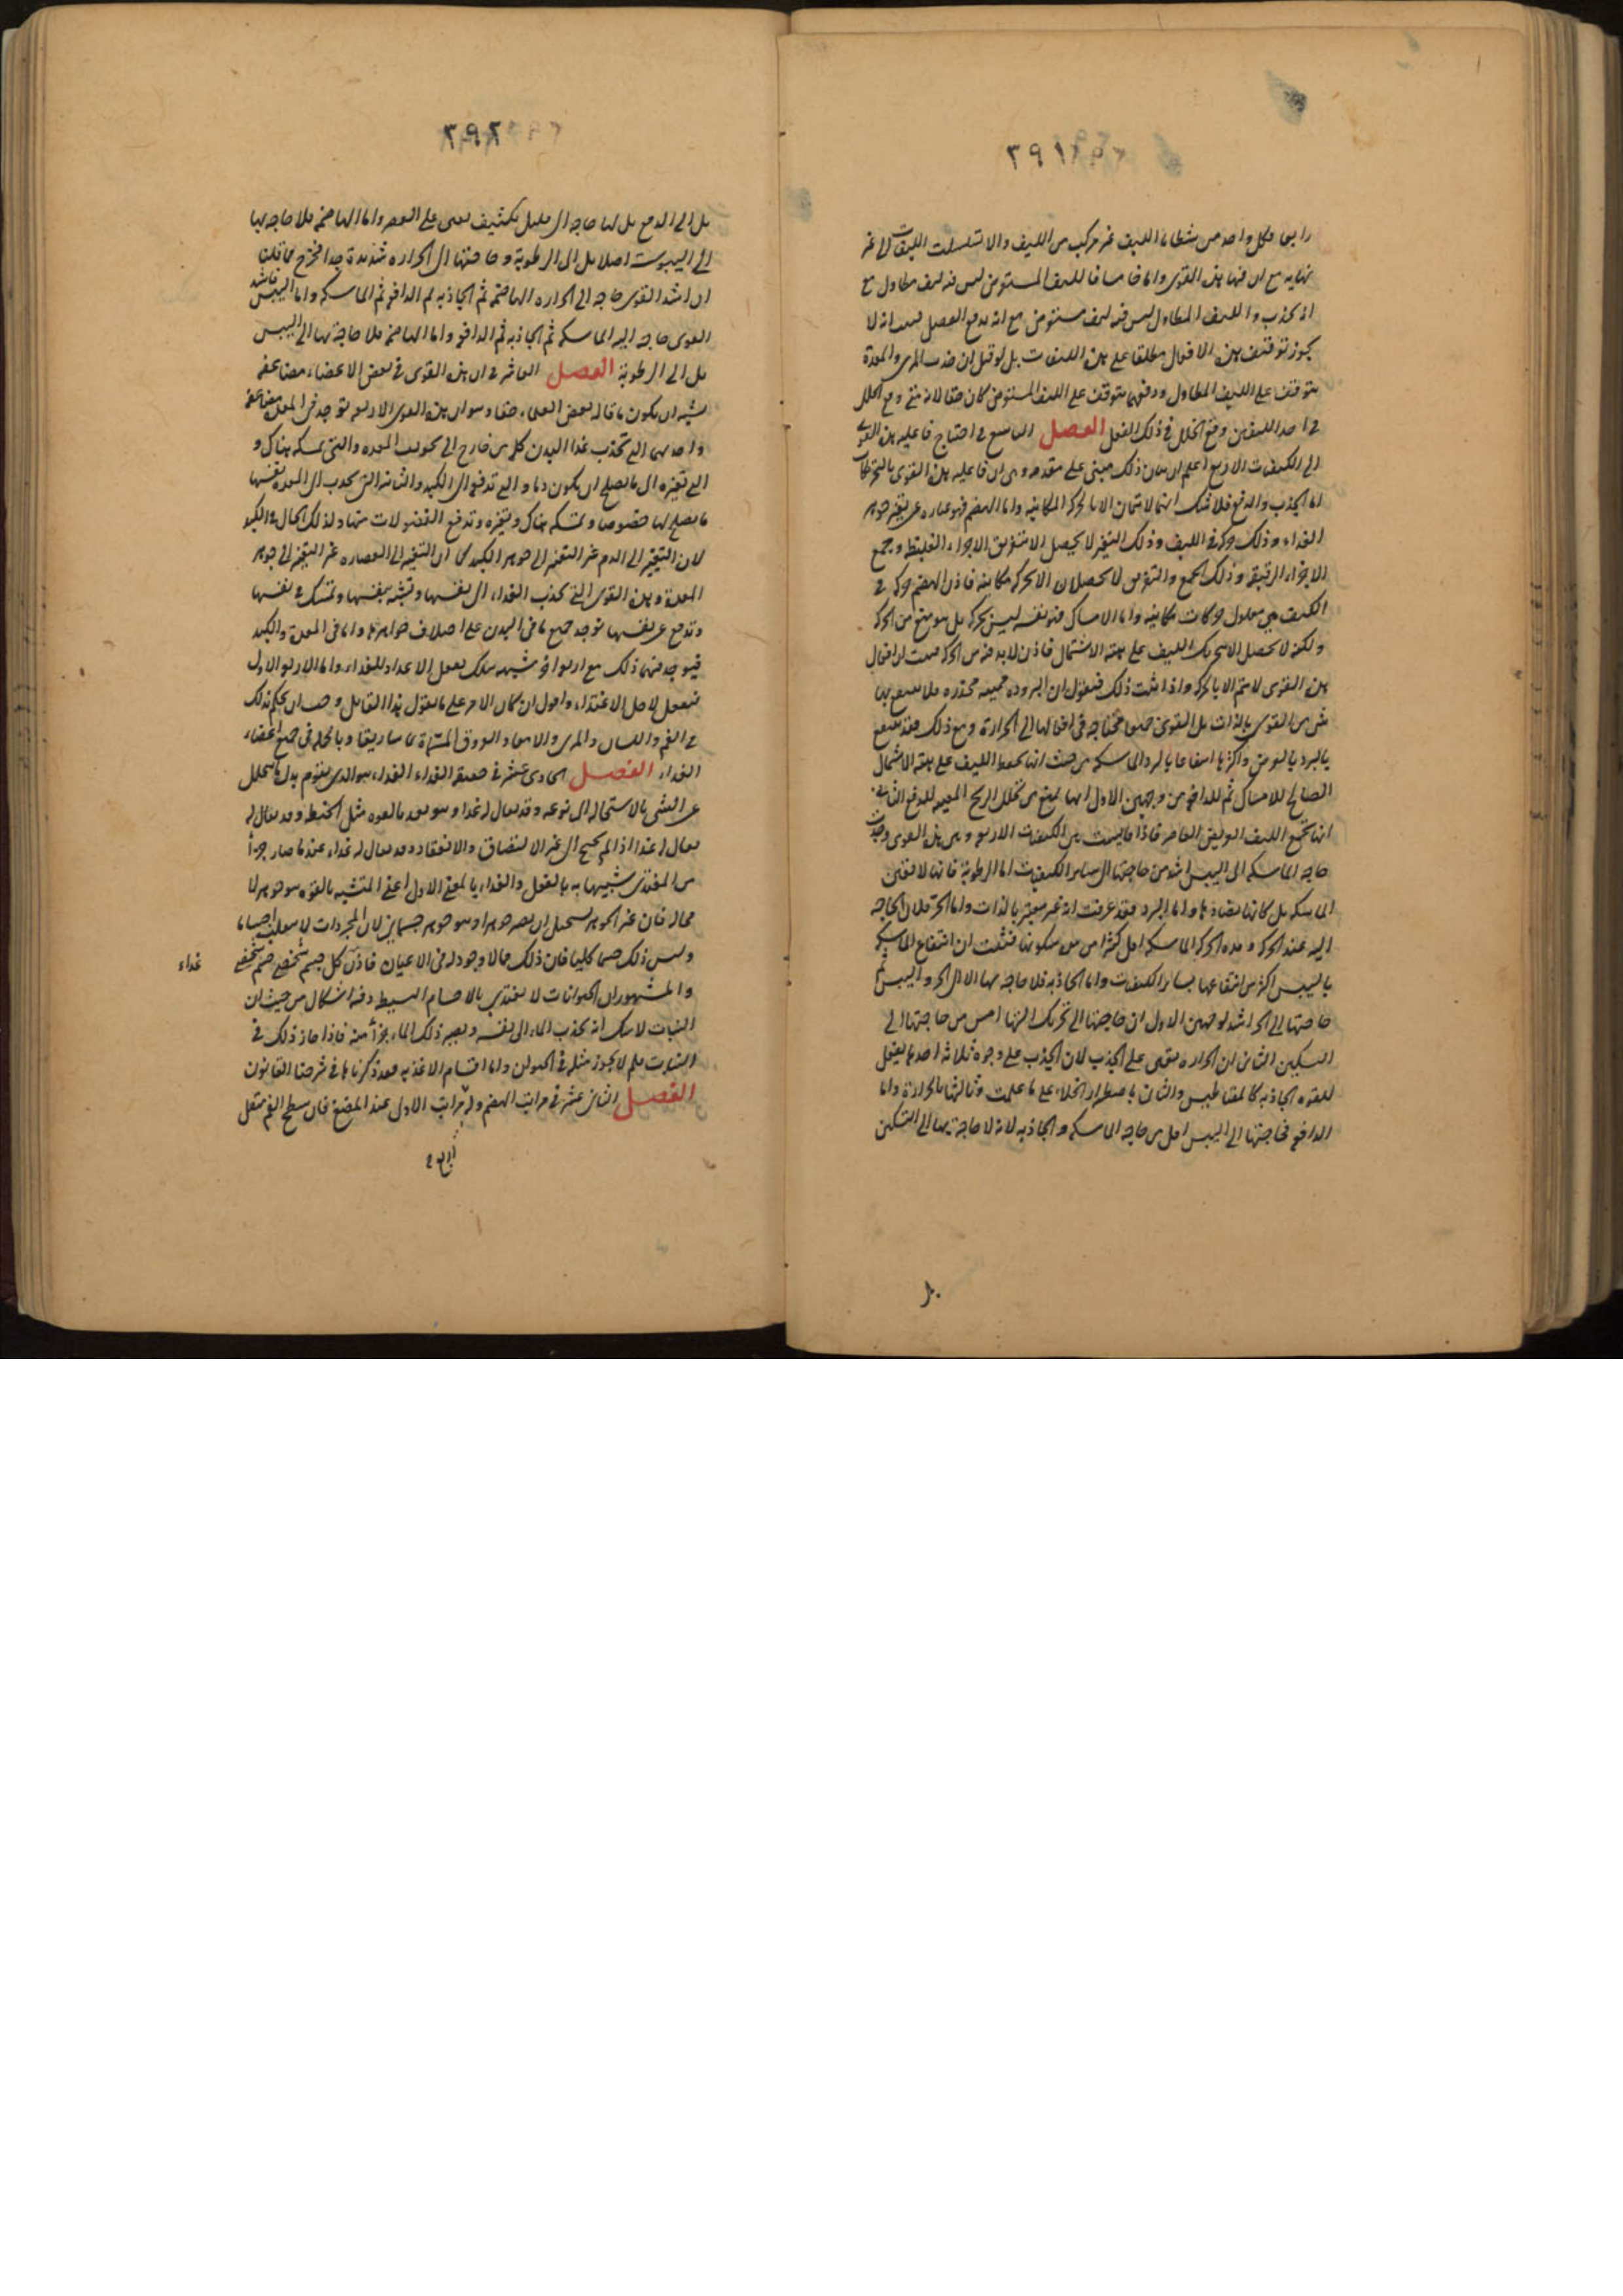 ٣٩١
كل واحد من شظايا الليف غير مركب من الليف والا تسلسلت الليفات الى غير
نهاية مع ان فيها هذه القوى واما خامسا فالليف المستعرض ليس فيه ليف متطاول مع
انه يجذب والليف المتطاول ليس فيه ليف مستعرض مع انه يدفع الفصل انه لا
يجوز توقيف هذه الافعال مطلقا على هذه الليفات بل لو قيل ان جذب المرى والمعدة
متوقف على الليف المتطاول ودفعهما متوقف على الليف المستعرض كان حقا لانه متى وقع الخلل
في احد الليفين وقع الخلل في ذلك الفعل الفصل التاسع في احتياج فاعليه هذه القوى
الى الكيفيات الاربع اعلم ان بيان ذلك مبنى على مقدمه وهى ان فاعليه هذه القوى بالتحريكات
اما الجذب والدفع فلا شك انهما لا يتمان الا بالحركة المكانيه واما الهضم فهو عباره عن تغير جوهر
الغذاء وذلك حركه في الكيف وذلك التغير لا يحصل الا بتفريق الاجزاء الغليظه وجمع
الاجزاء الرقيقه وذلك الجمع والتفريق لا يحصلان الا بحركه مكانيه فاذن الهضم حركه في
الكيف هى معلول حركات مكانيه واما الامساك فهو نفسه ليس بحركه بل هو منع من الحركه
ولكنه لا يحصل الا بتحريك الليف على هيئه الاشتمال فاذن لا بد فيه من الحركه فثبت ان افعال
هذه القوى لا يتم الا بالحركه واذا ثبت ذلك فنقول ان البروده مميته مخدره فلا ينتفع بها
شى من القوى بالذات بل القوى جميعها محتاجه في افعالها الى الحرارة ومع ذلك فقد ينتفع
بالبرد بالعرض واكثرها انتفاعا بالبرد الماسكه من حيث انها تحفظ الليف على هيئه الاشتمال
الصالح للامساك ثم للدافعه من وجهين الاول انها تمنع من تحلل الريح المعينه للدفع الثانى
انها تجمع الليف العريض العاصر فاذا قايست بين الكيفيات الاربع وبين هذه القوى وجدت
حاجه الماسكه الى اليبس اشد من حاجتها الى سائر الكيفيات اما الرطوبة فانها لا تعين
الماسكه بل كانها تضادها واما البرد فقد عرفت انه غير معتبر بالذات واما الحر فلان الحاجه
اليه عند الحركه ومده الحركه الماسكه اقل كثيرا من سكونها فثبت ان انتفاع الماسكه
باليبس اكثر من انتفاعها بسائر الكيفيات واما الجاذبه فلا حاجه بها الا الى الحر واليبس ثم
حاجتها الى الحر اشد لوجهين الاول ان حاجتها الى تحريك الليف امس من حاجتها الى
التسكين الثانى ان الحراره تعين على الجذب لان الجذب على وجوه ثلاثه احدها بفعل
القوه الجاذبه كالمقناطيس والثانى باضطرار الخلاء على ما علمت وثالثها بالحرارة واما
الدافعه فحاجتها الى اليبس اقل من حاجه الماسكه والجاذبه لانه لا حاجة بها الى التسكين
٣٩٢
بل الى الدفع بل لها حاجه الى قليل تكثيف يعين على العصر واما الهاضمه فلا حاجه بها
الى اليبوست اصلا بل الى الرطوبة وحاجتها الى الحراره شديدة جدا فخرج مما قلنا
ان اشد القوى حاجه الى الحراره الهاضمه ثم الجاذبه ثم الدافعه ثم الماسكه واما اليبس فاشد
القوى حاجه اليه الماسكه ثم الجاذبه ثم الدافعه واما الهاضمه فلا حاجة بها الى اليبس
بل الى الرطوبة الفصل العاشر في ان هذه القوى في بعض الاعضاء مضاعفه
يشبه ان يكون ما قاله بعض العلماء حقا وهو ان هذه القوى الاربعه توجد في المعده مضاعفه
واحديهما التى تجذب غذا البدن كله من خارج الى تجويف المعده والتى تمسكه هناك و
التى تغيره الى ما يصلح ان يكون دما والتى تدفعه الى الكبد والثانيه التى تجذب الى المعده نفسها
ما يصلح لها خصوصا وتمسكه هناك وتغيره وتدفع الفضولات منها وكذلك الحال في الكبد
لان التغير الى الدم غير التغير الى جوهر الكبد كما ان التغير الى العصاره غير التغير الى جوهر
المعدة وهذه القوى التى تجذب الغذاء الى نفسها وتشبه بنفسها وتمسك في نفسها
وتدفع عن نفسها توجد جميع ما في البدن على اختلاف جواهرها واما في المعدة والكبد
فيوجد فيهما ذلك مع اربع اخر شبيه بتلك يفعل الاعداد للغذاء واما الاربع الاول
فيفعل لاجل الاغتذاء واقول ان كان الامر على ما يقول هذا القايل وجب ان يحكم بذلك
في الفم واللسان والمرى والامعاء والعروق المسماة ماساريقا وبالجملة في جميع اعضاء
الغذاء الفصل الحادى عشر في حقيقه الغذاء الغذاء هو الذى يقوم بدل ما يتحلل
عن الشى بالاستحاله الى نوعه وقد يقال له غذا وهو بعد بالقوه مثل الحنطه وقد يقال له
يقال له غذا اذا لم يحتج الى غير الالتصاق والانعقاد وقد يقال له غذاء عند ما صار جزأ
من المغتذى شبيها به بالفعل والغذاء بالمعنى الاول اعنى المتشبه بالقوه هو جوهر لا
محاله فان غير الجوهر يستحيل ان يصير جوهرا وهو جوهر جسمانى لان المجردات لا تنقلب اجساما
وليس ذلك جسما كليا فان ذلك مما لا وجود له في الاعيان فاذن كل جسم شخصى جسم شخصى
غذاء
والمشهور ان الحيوانات لا تغتذى بالاجسام البسيطه وفيه اشكال من حيث ان
النبات لا شك انه يجذب الماء الى نفسه ويصير ذلك الماء جزأ منه فاذا جاز ذلك في
النبات فلم لا يجوز مثله في الحيوان واما اقسام الاغذيه فقد ذكرناها في شرحنا القانون
الفصل الثانى عشر في مراتب الهضم وله مراتب الاول عند المضغ فان سطح الفم متصل
اربع